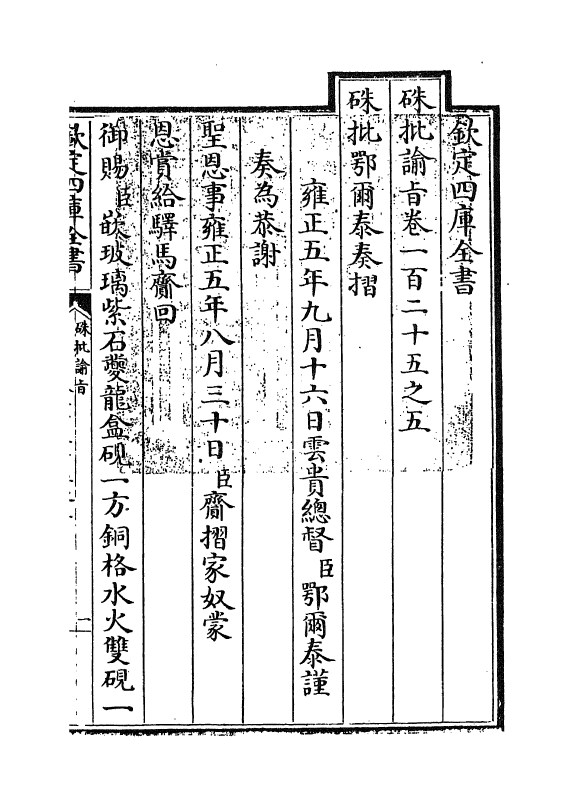 欽定四庫全書
硃批諭㫖卷一百二十五之五
硃批鄂爾泰奏摺
雍正五年九月十六日雲貴總督臣鄂爾泰謹
奏為恭謝
聖恩事雍正五年八月三十日臣齎摺家奴蒙
恩賞給驛馬齎回
御賜臣嵌玻璃紫石夔龍盒硯一方銅格水火雙硯一
欽定四庫全書
硃批諭㫖
一